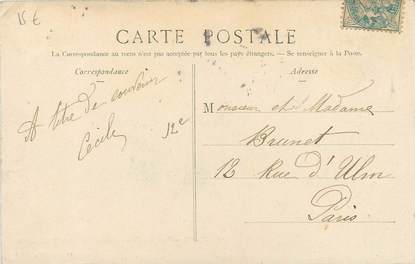 15 €
CARTE POSTALE
La Correspondance au recto n'est pas acceptée par tous les pays étrangers. — Se renseigner à la Poste.
Correspondance
Adresse
A titre de souvenir
Cécile
12e
Monsieur et Madame
Brunet
12 Rue d'Ulm
Paris